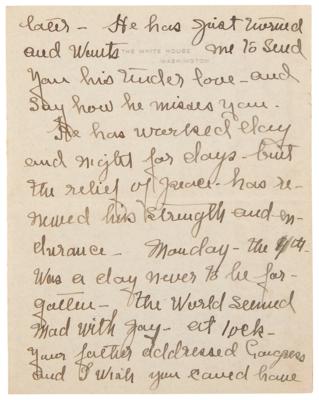 later – He has just turned
and Wants me to Send
THE WHITE HOUSE
WASHINGTON
You his tender love – and
Say how he misses you –
He has worked day
and night for days – but
the relief of peace – has re-
newed his strength and en-
durance – Monday – the 11th
Was a day never to be for-
gotten – the World seemed
Mad with joy – at 1 ock –
Your father addressed Congress
and I Wish you could have